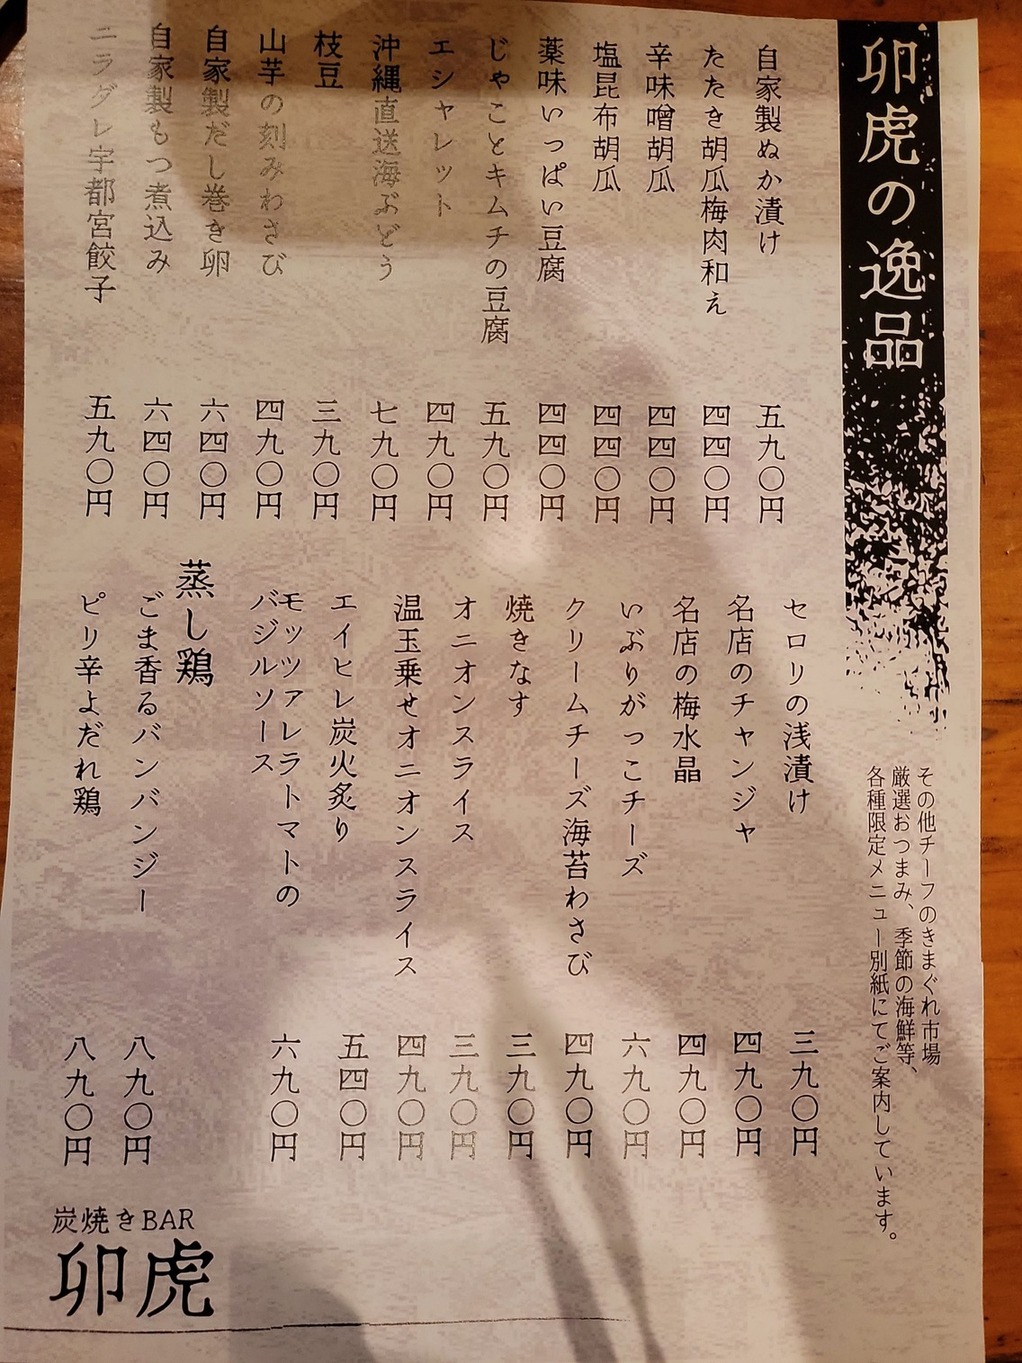 卯虎の逸品
その他チーフのきまぐれ市場
厳選おつまみ、季節の海鮮等、
各種限定メニュー別紙にてご案内しています。
自家製ぬか漬け 五九〇円
たたき胡瓜梅肉和え 四四〇円
辛味噌胡瓜 四四〇円
塩昆布胡瓜 四四〇円
薬味いっぱい豆腐 四四〇円
じゃことキムチの豆腐 五九〇円
エシャレット 四九〇円
沖縄直送海ぶどう 七九〇円
枝豆 三九〇円
山芋の刻みわさび 四九〇円
自家製だし巻き卵 六四〇円
自家製もつ煮込み 六四〇円
ニラダレ宇都宮餃子 五九〇円
セロリの浅漬け 三九〇円
名店のチャンジャ 四九〇円
名店の梅水晶 四九〇円
いぶりがっこチーズ 六九〇円
クリームチーズ海苔わさび 四九〇円
焼きなす 三九〇円
オニオンスライス 三九〇円
温玉乗せオニオンスライス 四九〇円
エイヒレ炭火炙り 五四〇円
モッツァレラトマトの
バジルソース 六九〇円
蒸し鶏
ごま香るバンバンジー 八九〇円
ピリ辛よだれ鶏 八九〇円
炭焼きBAR
卯虎